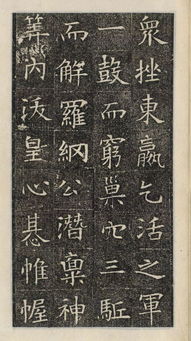 眾挫東嬴乞活之軍
一鼓而窮巢穴三駈
而解羅網公潛稟神
筭內沃皇心惎帷幄